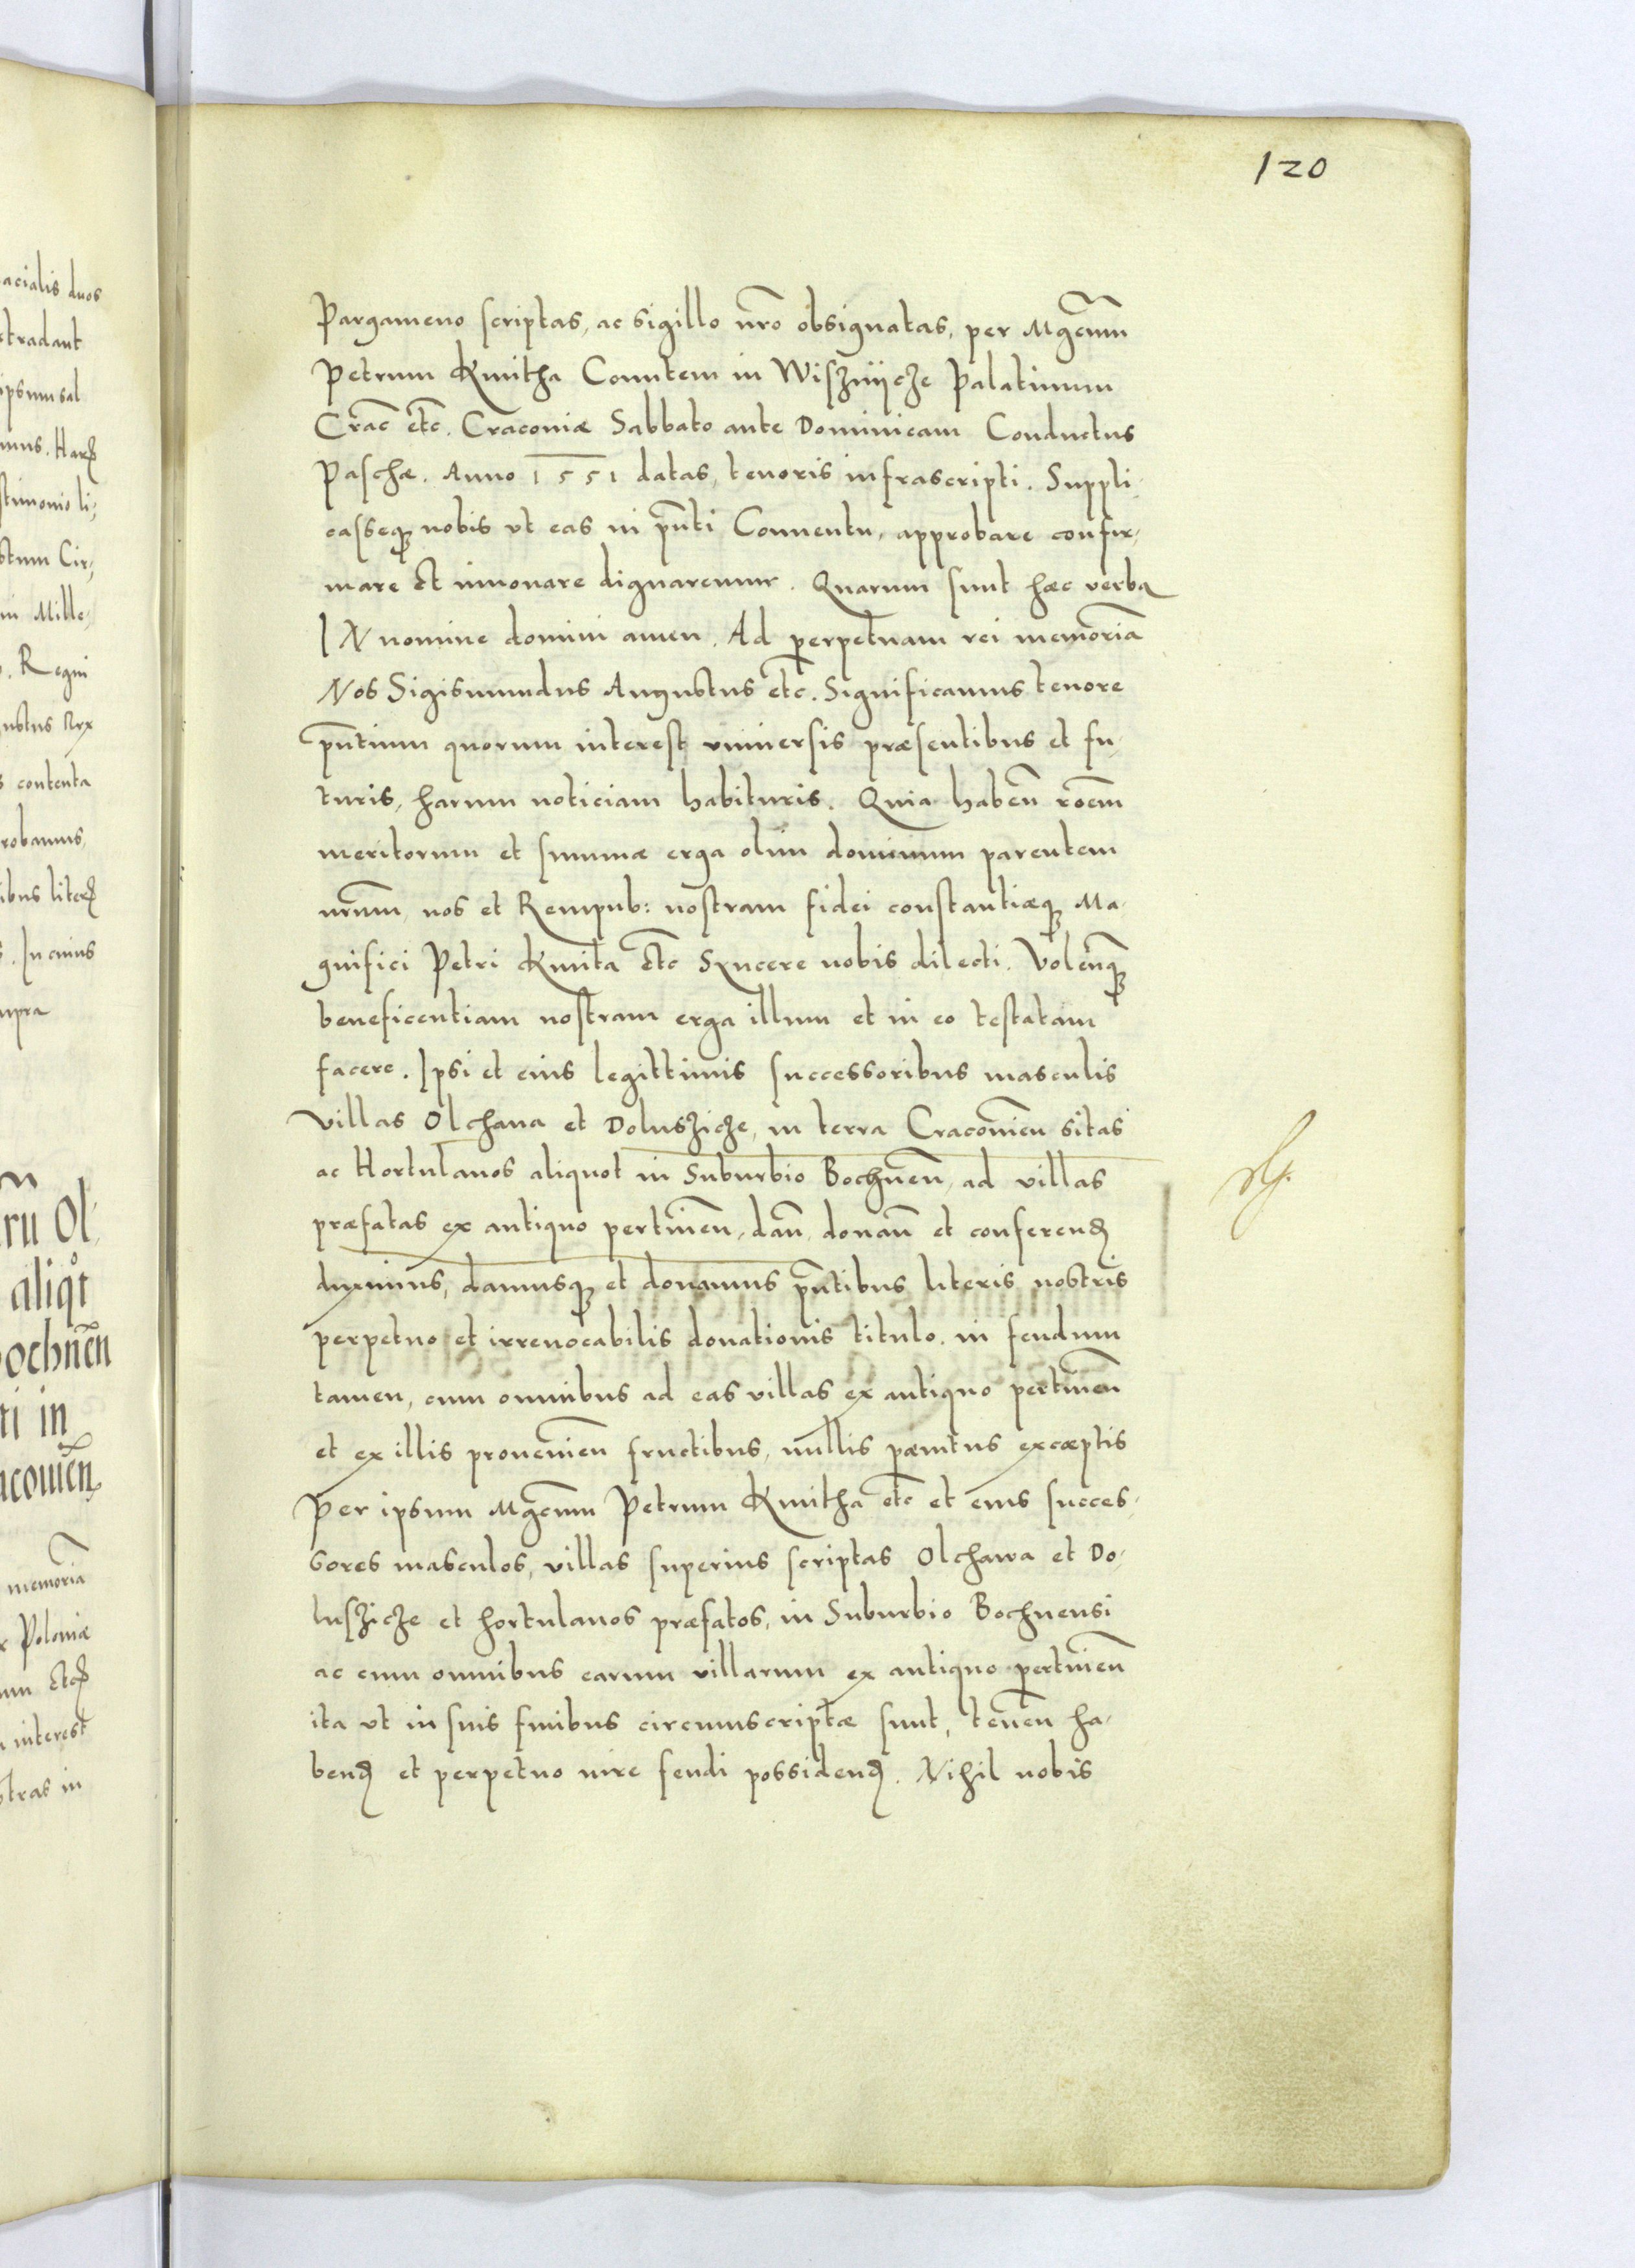 120
Pargameno scriptas, ac sigillo nr̃o obsignatas, per Mgc̃um
Petrum Kmitha Comitem in Wisznijcze Palatinum
Crac̃ etc̃. Cracouiæ Sabbato ante Dominicam Conductus
Paschæ. Anno 1551 datas, tenoris infrascripti. Suppli-
casseq; nobis vt eas in pñti Conuentu, approbare confir-
mare et innouare dignaremur. Quarum sunt hæc verba
IN nomine domini amen. Ad perpetuam rei memoriã
Nos Sigismundus Augustus etc̃. Significamus tenore
pñtium quorum interest vniuersis præsentibus et fu-
turis, harum noticiam habituris. Quia habeñ rõem
meritorum et summæ erga olim dominum parentem
nr̃um, nos et Rempub: nostram fidei constantiæq; Ma-
gnifici Petri Kmita etc̃ Syncere nobis dilecti. Voleñq;
beneficentiam nostram erga illum et in eo testatam
facere. Ipsi et eius legittimis successoribus masculis
villas Olchaua et Doluszicze, in terra Cracouieñ sitas
ac Hortulanos aliquot in Suburbio Bochneñ, ad villas
præfatas ex antiquo pertineñ, dañ, donañ et conferend
duximus, damusq; et donamus pñtibus literis nostris
perpetuo et irreuocabilis donationis titulo. in feudum
tamen, cum omnibus ad eas villas ex antiquo pertineñ
et ex illis prouenieñ fructibus, nullis pænitus excæptis
Per ipsum Mgc̃um Petrum Kmitha etc̃ et eius succes-
sores masculos, villas superius scriptas Olchawa et Do-
luszicze et hortulanos præfatos, in Suburbio Bochnensi
ac cum omnibus earum villarum ex antiquo pertineñ
ita vt in suis finibus circumscriptæ sunt, teneñ ha-
bend et perpetuo iure feudi possidend. Nihil nobis